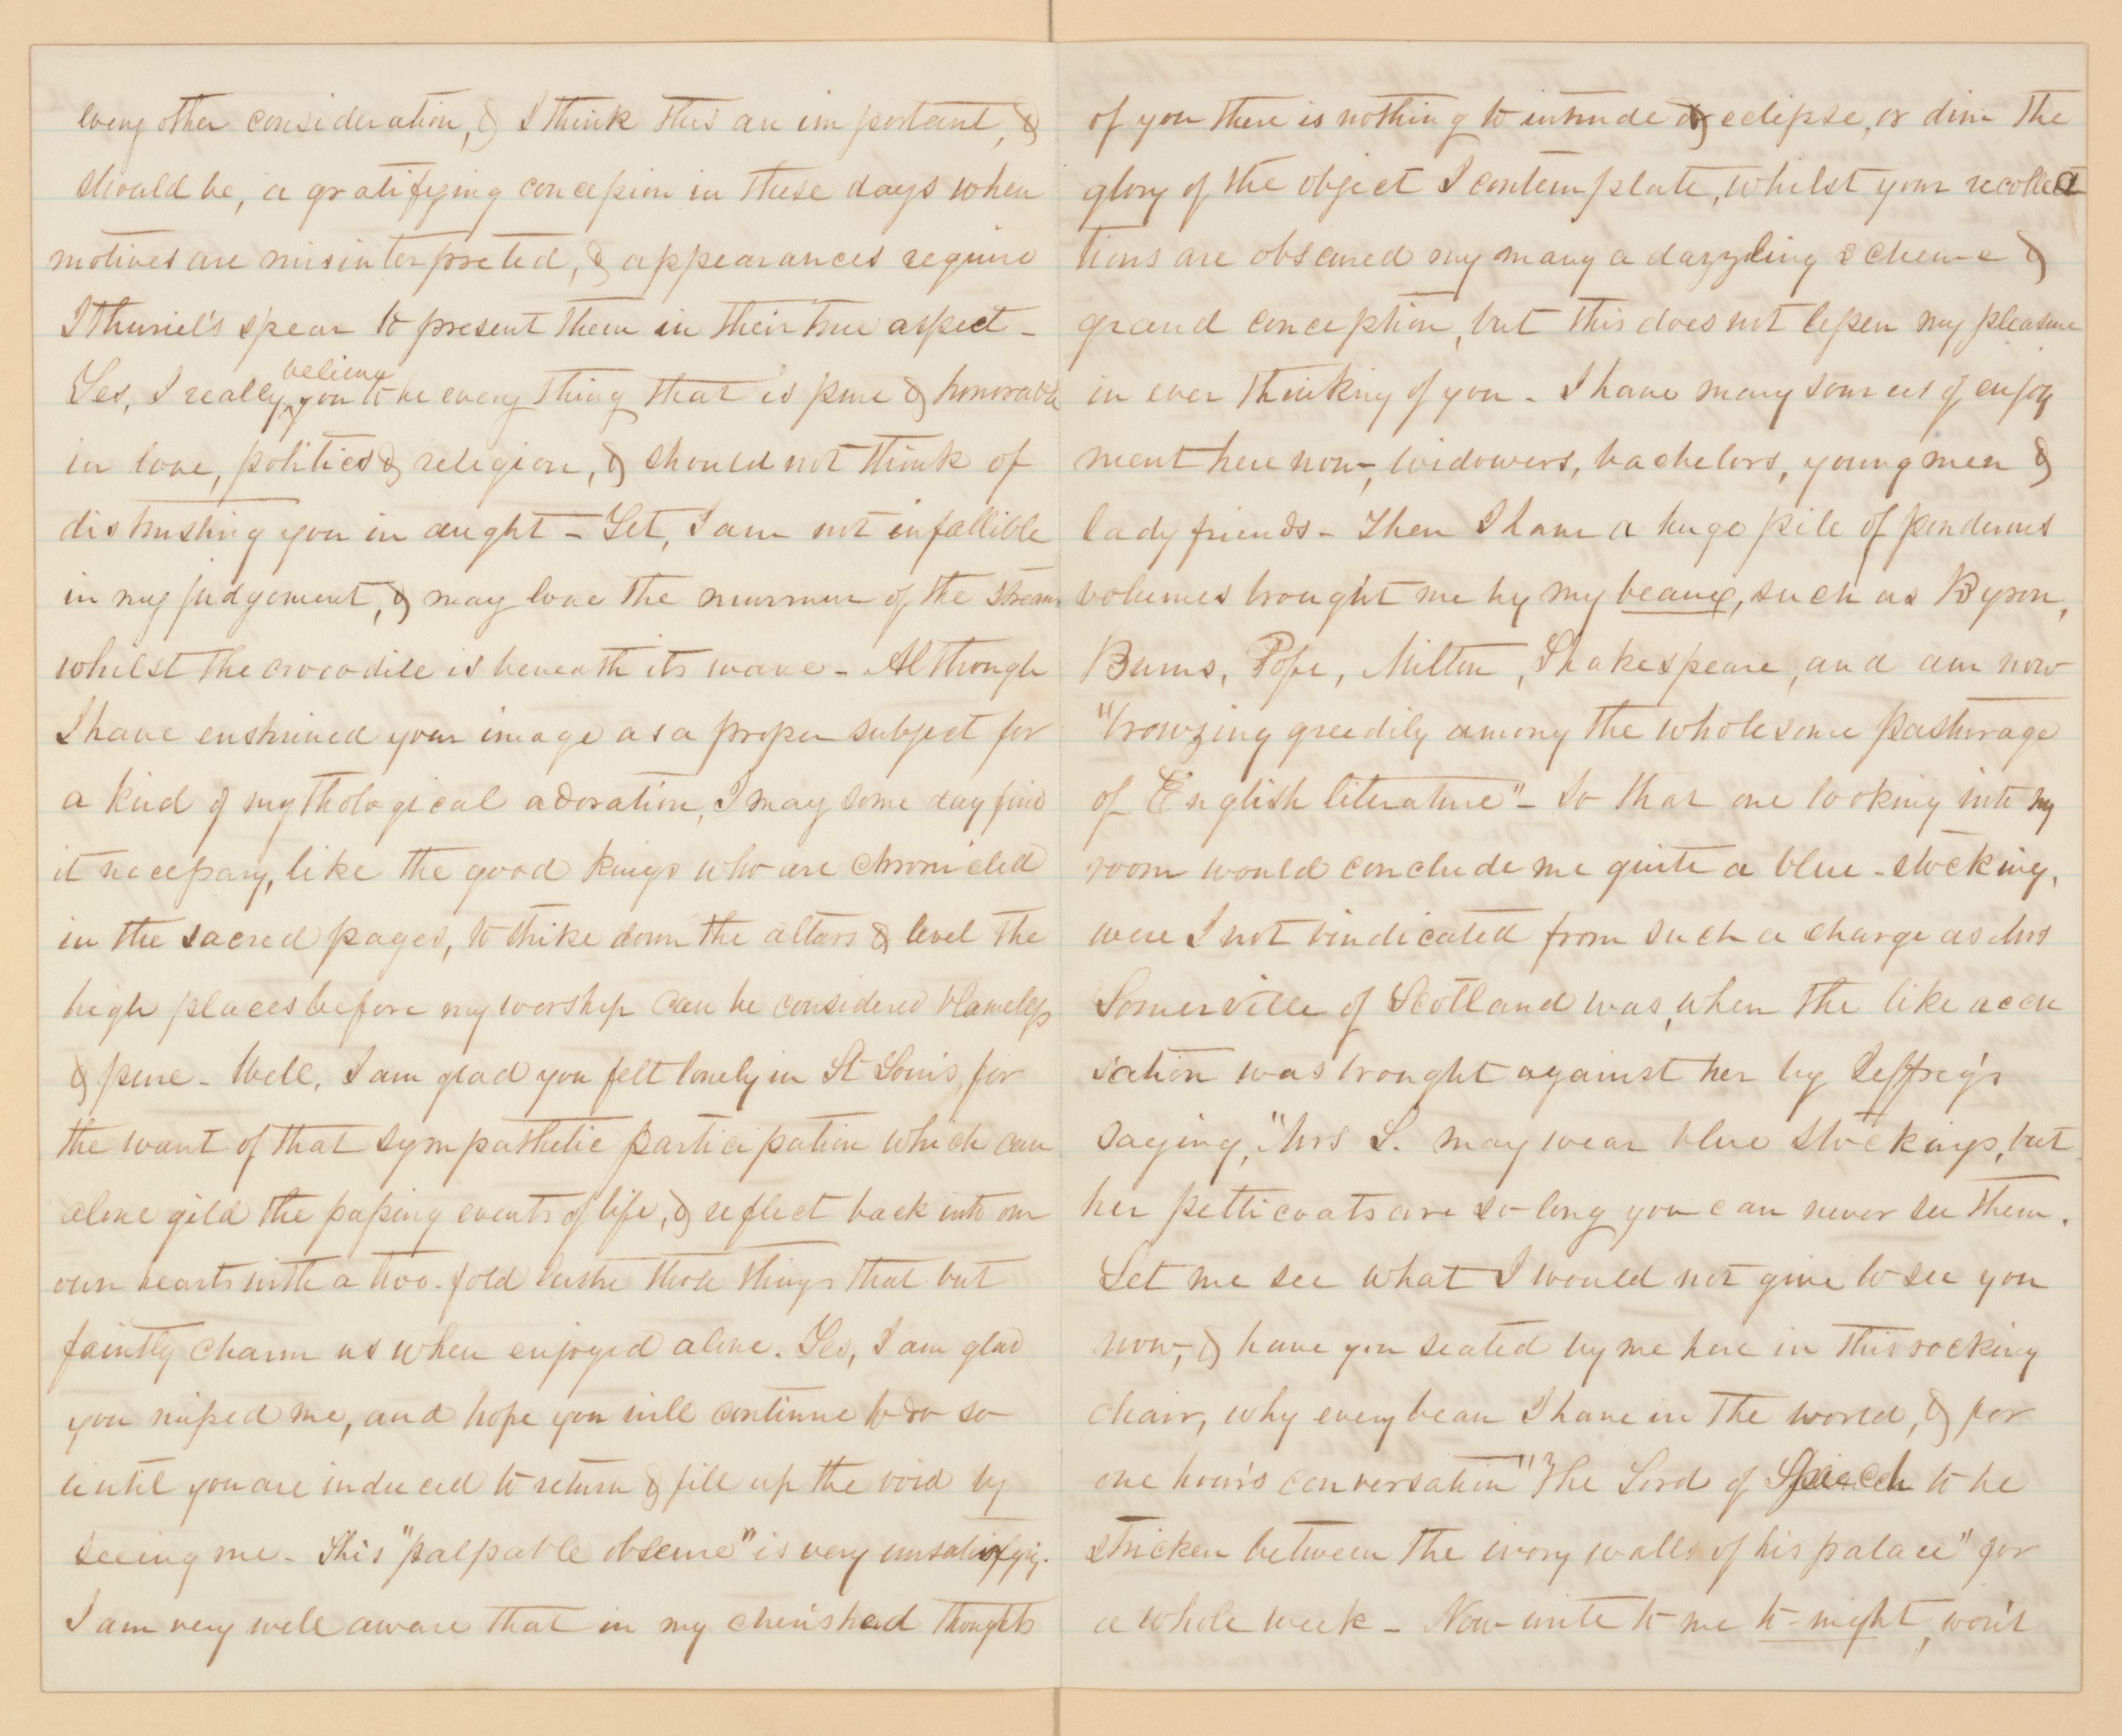 every other consideration, & I think this an important, &
should be, a gratifying concession in these days when
motives are misinterpreted, & appearances require
Ithuriel's spear to present them in their true aspect -
believe
Yes, I really ^ you to be every thing that is pure & honorable
in love, politics & religion, & should not think of
distrusting you in aught - Yet, I am not infallible
in my judgement, & may love the murmur of the stream
whilst the crocodile is beneath its wave - Although
I have enshrined your image as a proper subject for
a kind of mythological adoration, I may some day find
it necessary, like the good kings who are chronicled
in the sacred pages, to strike down the altars & level the
high places before my worship can be considered blameless
& pure - Well, I am glad you felt lonely in St Louis, for
the want of that sympathetic participation which can
alone gild the passing events of life, & reflect back into our
own hearts with a two-fold lustre those things that but
faintly charm us when enjoyed alone. Yes, I am glad
you missed me, and hope you will continue to do so
until you are induced to return & fill up the void by
seeing me - This "palpable obscure" is very unsatisfying.
I am very well aware that in my cherished thoughts
of you there is nothing to intrude or eclipse, or dim the
glory of the object I contemplate, whilst your recollec
tions are obscured my many a dazzling scheme &
grand conception, but this does not lessen my pleasure
in ever thinking of you - I have many sources of enjoy
ment here now, widowers, bachelors, young men &
lady friends - Then I have a huge pile of ponderous
volumes brought me by my beaux, such as Byron,
Burns, Pope, Milton, Shakespeare, and am now
"browzing greedily among the wholesome pasturage
of English literature" - So that one looking into my
room would conclude me quite a blue-stocking,
were I not vindicated from such a charge as Mrs
Somerville of Scotland was, when the like accu
sation was brought against her by Jeffrey's
saying, "Mrs S. may wear blue stockings, but
her petticoats are so long you can never see them.
Let me see what I would not give to see you
now, & have you seated by me here in this rocking
chair, why every beau I have in the world, & for
one hour's conversation "The Lord of Speech to be
stricken between the ivory walls of his palace" for
a whole week - Now write to me to-night, won't